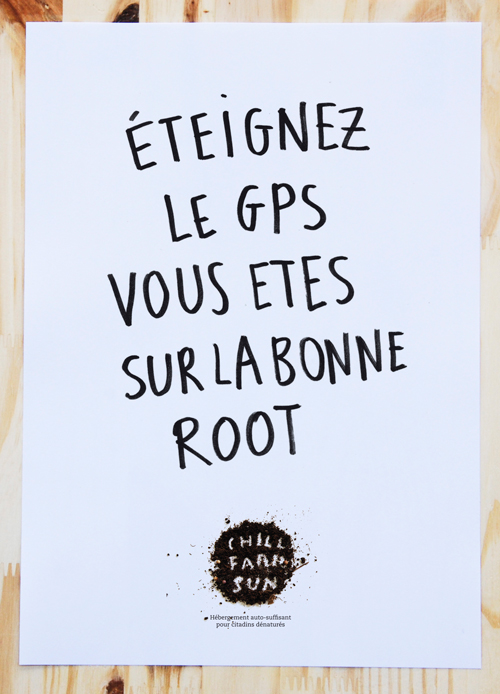 ÉTEiGNEZ
LE GPS
VOUS ETES
SUR LA BONNE
ROOT
CHILL
FARM
SUN
Hébergement auto-suffisant
pour citadins dénaturés